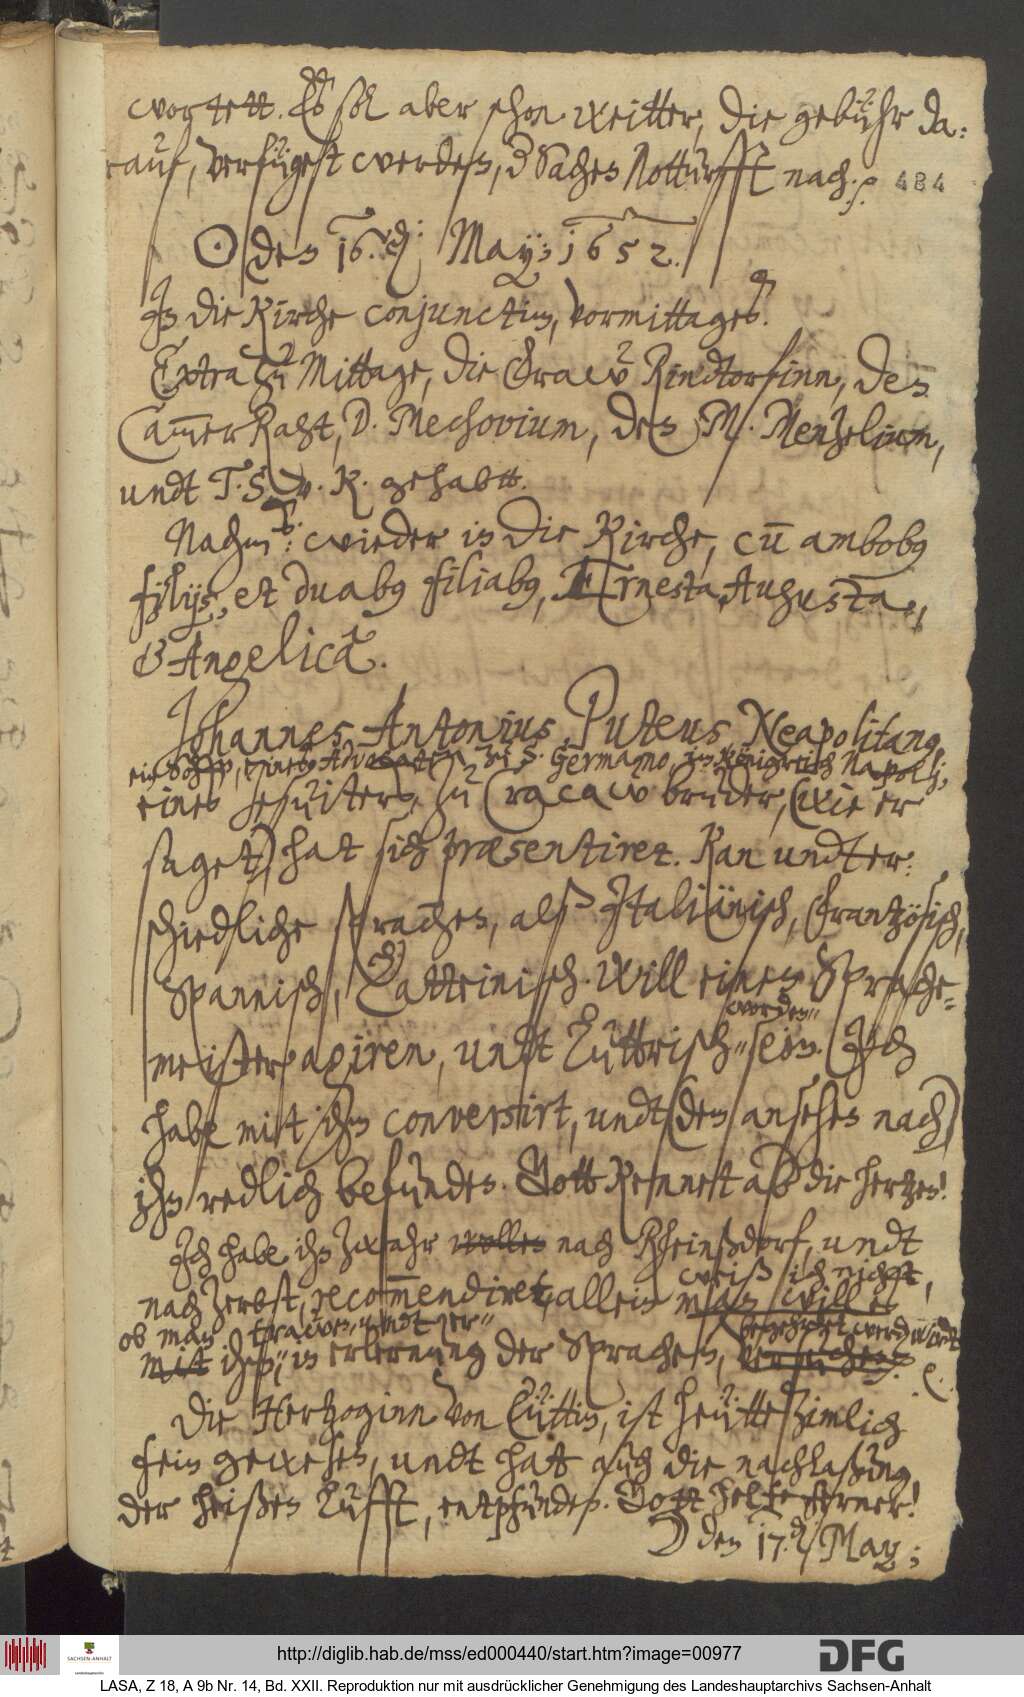 wortett. Es sol aber schon weitter, die gebühr da:
rauf, verfüget werden, d Sachen Notturfft nach. 484
☉ den 16. May; 1652.
In die Kirche conjunctim, vormittages.
Extra zu Mittage, die Fraw Rindtorfinn, den
Cam̄erRaht, D. Mechovium, den M. Menzelium,
undt T. S. v. R. gehabtt.
Nachmts: wieder in die Kirche, cū ambobus
filijs, et duabus filiabus, Ernesta Augusta,
& Angelica.
Johannes Antonius Puteus Neapolitanus,
ein Sohn, eines Advocaten zu S. Germano, im Königreich Napolj,
eines Jesuiters, zu Cracaw bruder, (wie er
saget) hat sich præsentiret. Kan undter:
schiedliche sprachen, alß Italiänisch, Frantzösisch,
Spannisch, Latteinisch. Will einen Sprache-
meister agiren, undt Luttrisch worden sein. Ich
habe mitt ihm conversirt, undt (dem ansehen nach)
ihn redlich befunden. Gott Kennett aber die hertzen!
Ich habe ihn zwahr wollen nach Rheinßdorf, undt
nach Zerbst, recom̄endiret, allein man will es
weiß ich nicht,
ob man trawen undt er
mitt ihm, in erlernung der Sprachen, versuchen.
begehrt werden wirdt
Die Hertzoginn von Lüttin, ist heütte zimlich
fein gewesen, undt hatt auch die nachlaßung
der heißen Lufft, entpfunden. Gott helfe ferner!
☽ den 17. May;
http://diglib.hab.de/mss/ed000440/start.htm?image=00977
DFG
SACHSEN-ANHALT
LASA, Z 18, A 9b Nr. 14, Bd. XXII. Reproduktion nur mit ausdrücklicher Genehmigung des Landeshauptarchivs Sachsen-Anhalt